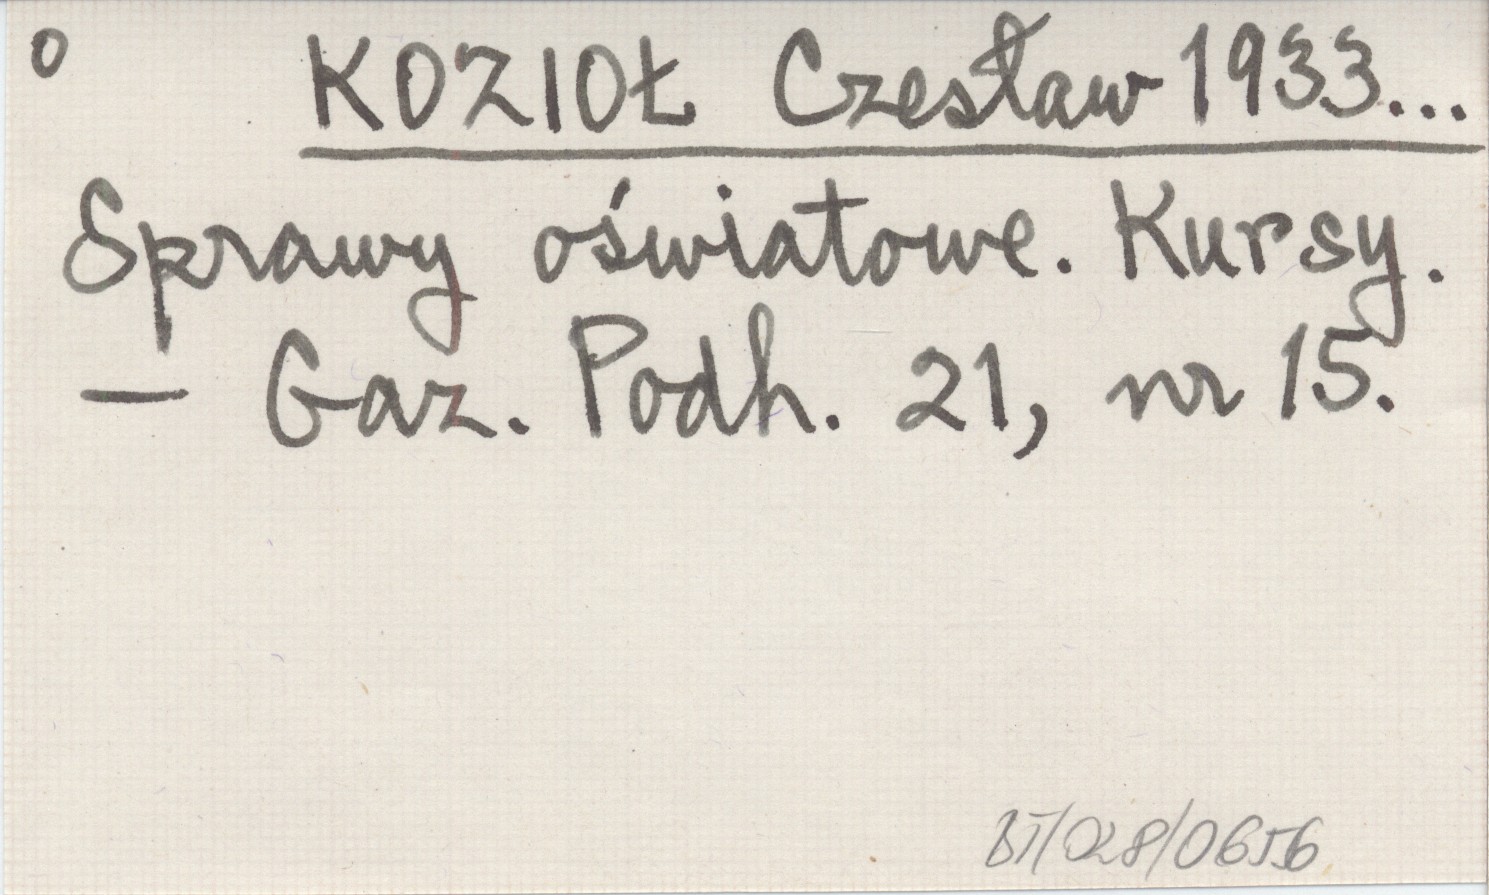 o KOZIOŁ Czesław 1933...
Sprawy oświatowe. Kursy.
— Gaz. Podh. 21, nr 15.
BT/028/0656